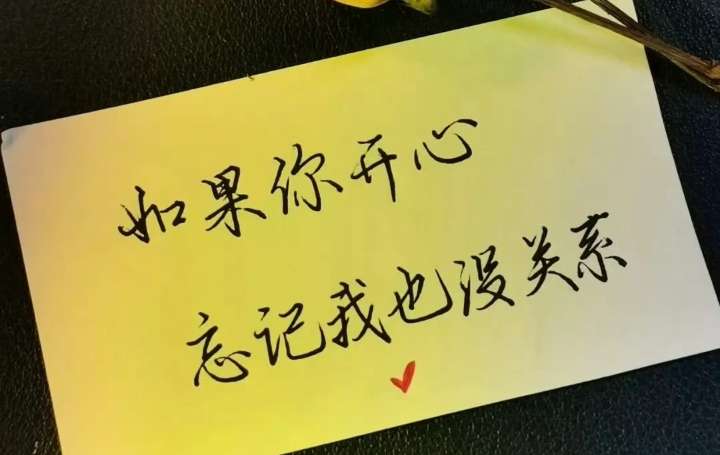 如果你开心
忘记我也没关系